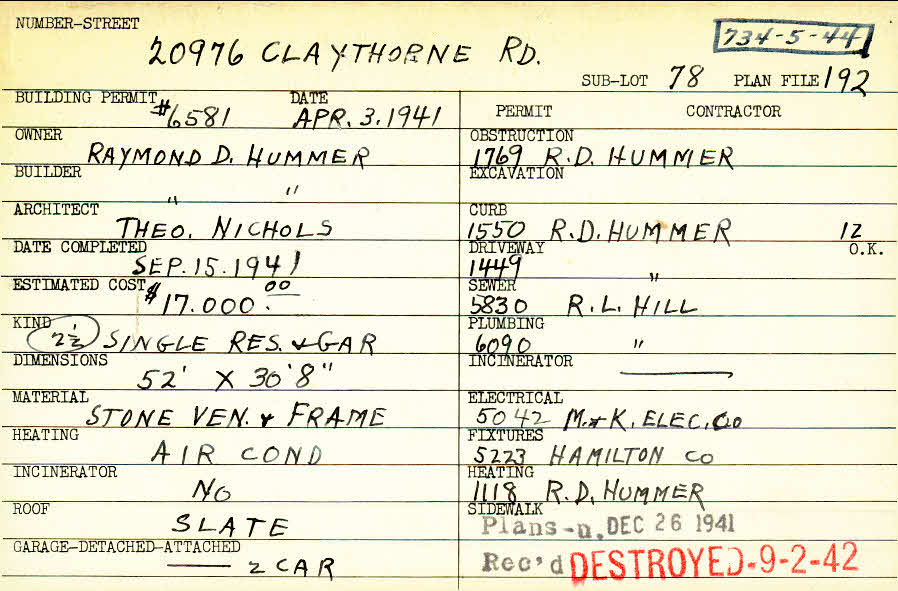 NUMBER-STREET
734-5-44
20976 CLAYTHORNE RD.
SUB-LOT 78 PLAN FILE 192
BUILDING PERMIT #6581 DATE APR. 3. 1941
OWNER RAYMOND D. HUMMER
BUILDER " "
ARCHITECT THEO. NICHOLS
DATE COMPLETED SEP. 15. 1941
ESTIMATED COST $17.000.00
KIND 2½ SINGLE RES. & GAR
DIMENSIONS 52' X 30'8"
MATERIAL STONE VEN. & FRAME
HEATING AIR COND
INCINERATOR NO
ROOF SLATE
GARAGE-DETACHED-ATTACHED —— 2 CAR
PERMIT CONTRACTOR
OBSTRUCTION 1769 R.D. HUMMER
EXCAVATION
CURB 1550 R.D. HUMMER 12
DRIVEWAY 1449 " O.K.
SEWER 5830 R.L. HILL
PLUMBING 6090 "
INCINERATOR ——
ELECTRICAL 5042 M. & K. ELEC. CO
FIXTURES 5223 HAMILTON CO
HEATING 1118 R.D. HUMMER
SIDEWALK
Plans-n. DEC 26 1941
Rec'd DESTROYED-9-2-42